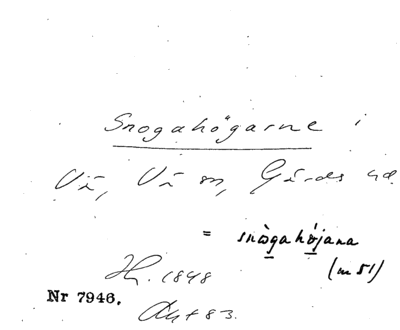 Snogahögarne i
Vä, Vä sn, Gärds hd
= snògahö́jana
(m 51)
H. 1848
Nr 7946.
Akt 83.